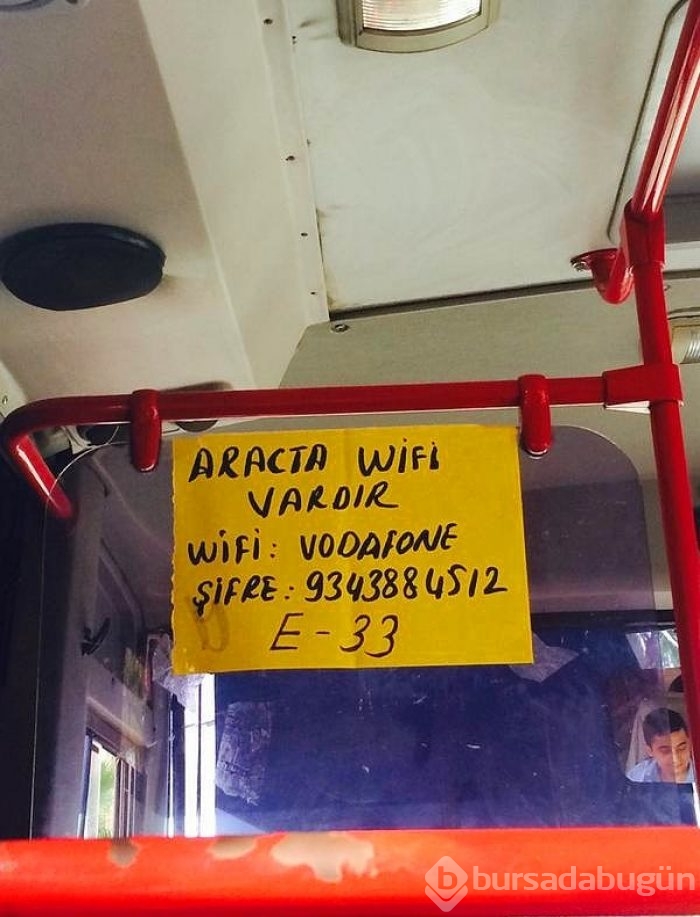 ARAÇTA WiFi
VARDIR
WiFi: VODAFONE
ŞİFRE: 9343884512
E-33
bursadabugün